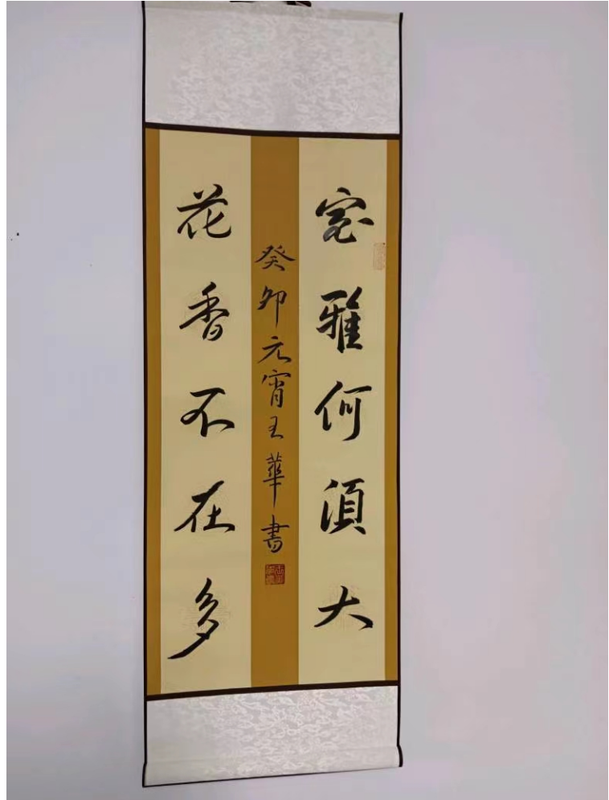 室雅何須大
花香不在多
癸卯元宵王華書